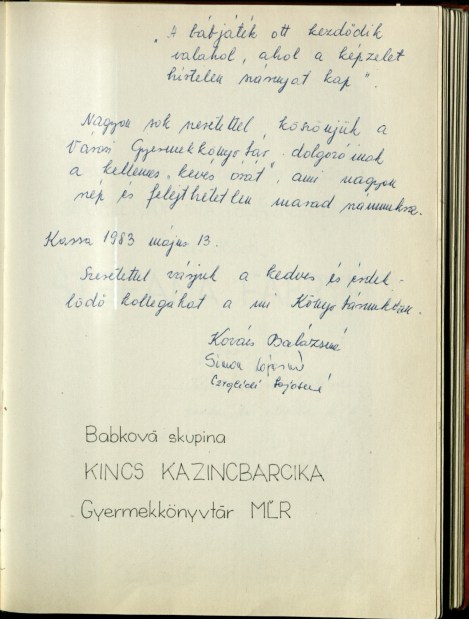 „A bábjáték ott kezdődik
valahol, ahol a képzelet
hirtelen szárnyat kap”.
Nagyon sok szeretettel köszönjük a
Városi Gyermekkönyvtár dolgozóinak
a kellemes „kevés órát”, ami nagyon
szép és felejthetetlen marad számunkra.
Kassa 1983 május 13.
Szeretettel várjuk a kedves és érdek-
lődő kollegákat a mi Könyvtárunkban.
Kovács Balázsné
Simon Lajosné
Lajosné
Babková skupina
KINCS KAZINCBARCIKA
Gyermekkönyvtár MĽR